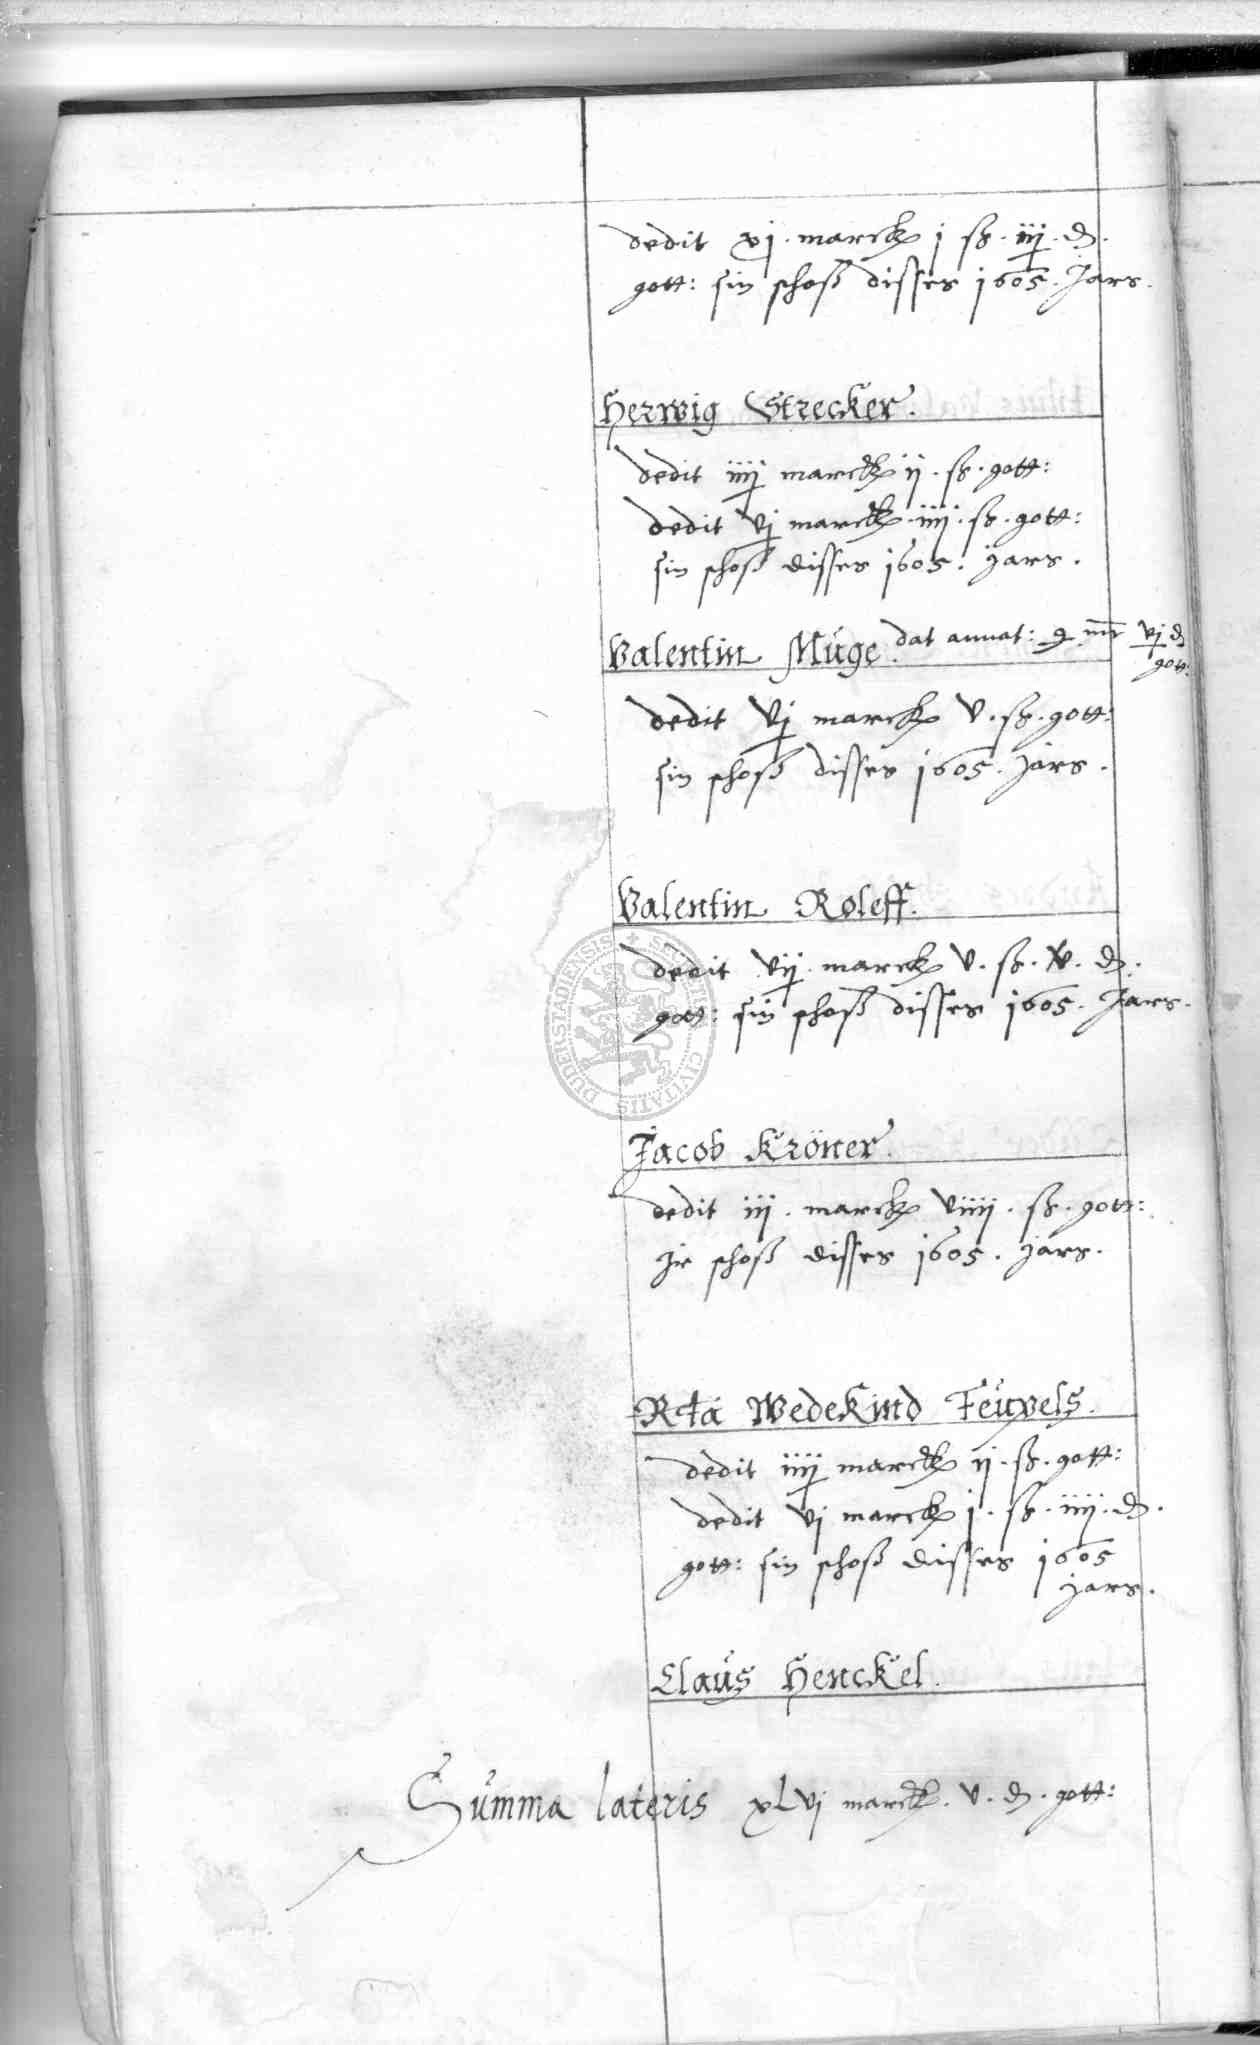 dedit xj. marck j sß. iiij. ₰.
gott: sin schoß disses 1605. Jars.
Herwig Strecker.
dedit iiij marck ij. sß. gott:
dedit vj marck. iiij. sß. gott:
sin schoß disses 1605. jars.
Valentin Müge. dat annat: 9 mr vj ₰
gott:
dedit vj marck v. sß. gott:
sin schoß disses 1605. Jars.
Valentin Roleff.
dedit vij. marck v. sß. v. ₰.
gott: sin schoß disses 1605. Jars.
SECRETUM CIVITATIS DUDERSTADIENSIS
Jacob Kröner.
dedit iij. marck viiij. sß. gott:
Jr schoß disses 1605. jars.
Rcta Wedekind Teuvels.
dedit iiij marck ij. sß. gott:
dedit vj marck j. sß. iiij. ₰.
gott: sin schoß disses 1605
jars.
Claus Henckel.
Summa lateris xLvj marck. v. ₰. gott: